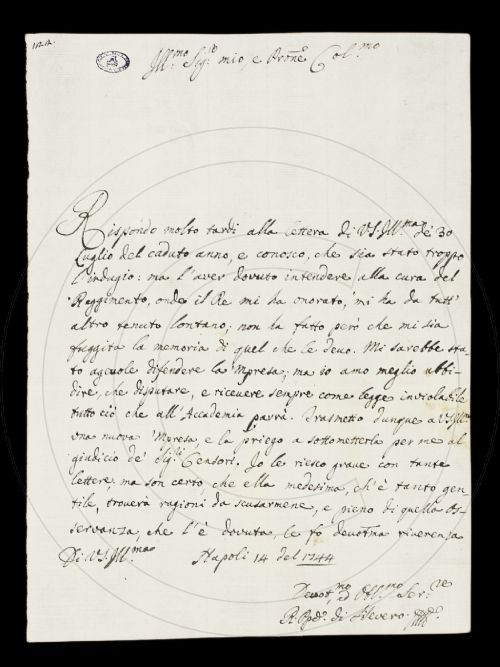 Ill.mo Sig.re mio, e Prone Col.mo
Rispondo molto tardi alla lettera di V.S. Ill.ma de' 30
Luglio del caduto anno, e conosco, che sia stato troppo
l'indugio: ma l'aver dovuto intendere alla cura del
Reggimento, onde il Re mi ha onorato, mi ha da tutt'
altro tenuto lontano; non ha fatto però che mi sia
fuggita la memoria di quel che le devo. Mi sarebbe sta-
to agevole difendere la 'Mpresa; ma io amo meglio ubbi-
dire, che disputare, e ricevere sempre come legge inviolabile
tutto ciò che all'Accademia parrà. Trasmetto dunque a V.S. Ill.ma
una nuova 'Mpresa, e la priego a sottometterla per me al
giudicio de' Sig.ri Censori. Io le riesco grave con tante
lettere, ma son certo, che ella medesima, ch'è tanto gen-
tile, troverà ragioni da scusarmene, e pieno di quella os-
servanza, che l'è dovuta, le fo devotma riverenza
Di V.S. Ill.ma Napoli 14 del 1744
Devot.mo ed Obb.mo Ser.re
di S.Severo